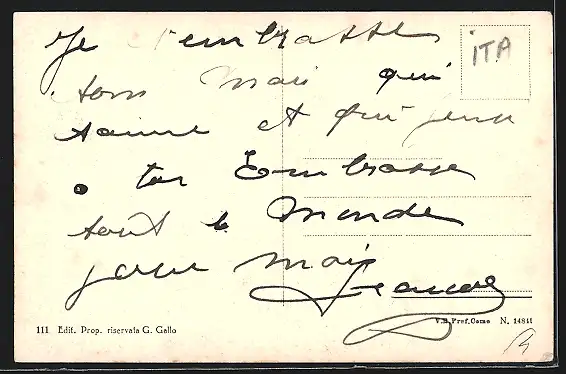 Je t'embrasse
ITA
ton mari qui
t'aime et qui pense
a toi Embrasse
tout le Monde
pour moi
111 Edit. Prop. riservata G. Gallo
V.B Pref. Como N. 14841